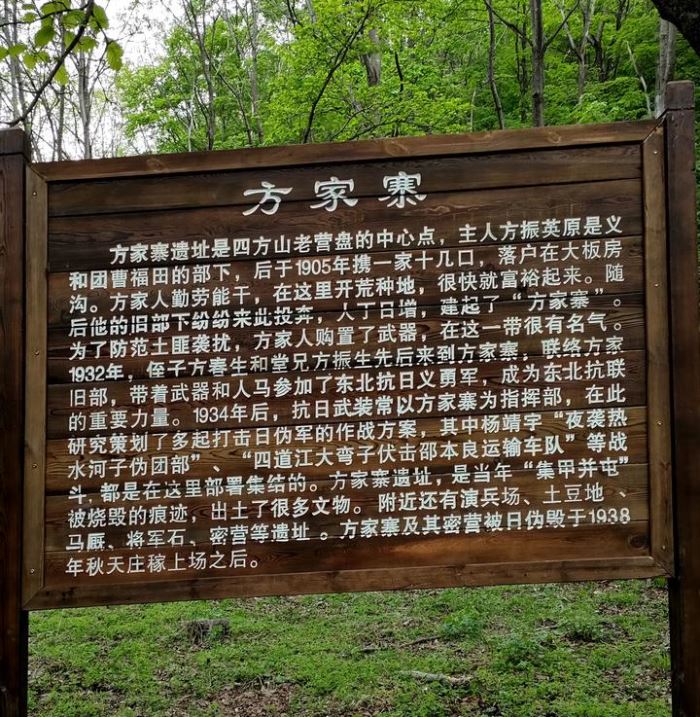 方家寨
方家寨遗址是四方山老营盘的中心点，主人方振英原是义
和团曹福田的部下，后于1905年携一家十几口，落户在大板房
沟。方家人勤劳能干，在这里开荒种地，很快就富裕起来。随
后他的旧部下纷纷来此投奔，人丁日增，建起了“方家寨”。
为了防范土匪袭扰，方家人购置了武器，在这一带很有名气。
1932年，侄子方春生和堂兄方振生先后来到方家寨，联络方家
旧部，带着武器和人马参加了东北抗日义勇军，成为东北抗联
的重要力量。1934年后，抗日武装常以方家寨为指挥部，在此
研究策划了多起打击日伪军的作战方案，其中杨靖宇“夜袭热
水河子伪团部”、“四道江大弯子伏击邵本良运输车队”等战
斗，都是在这里部署集结的。方家寨遗址，是当年“集甲并屯”
被烧毁的痕迹，出土了很多文物。附近还有演兵场、土豆地、
马厩、将军石、密营等遗址。方家寨及其密营被日伪毁于1938
年秋天庄稼上场之后。